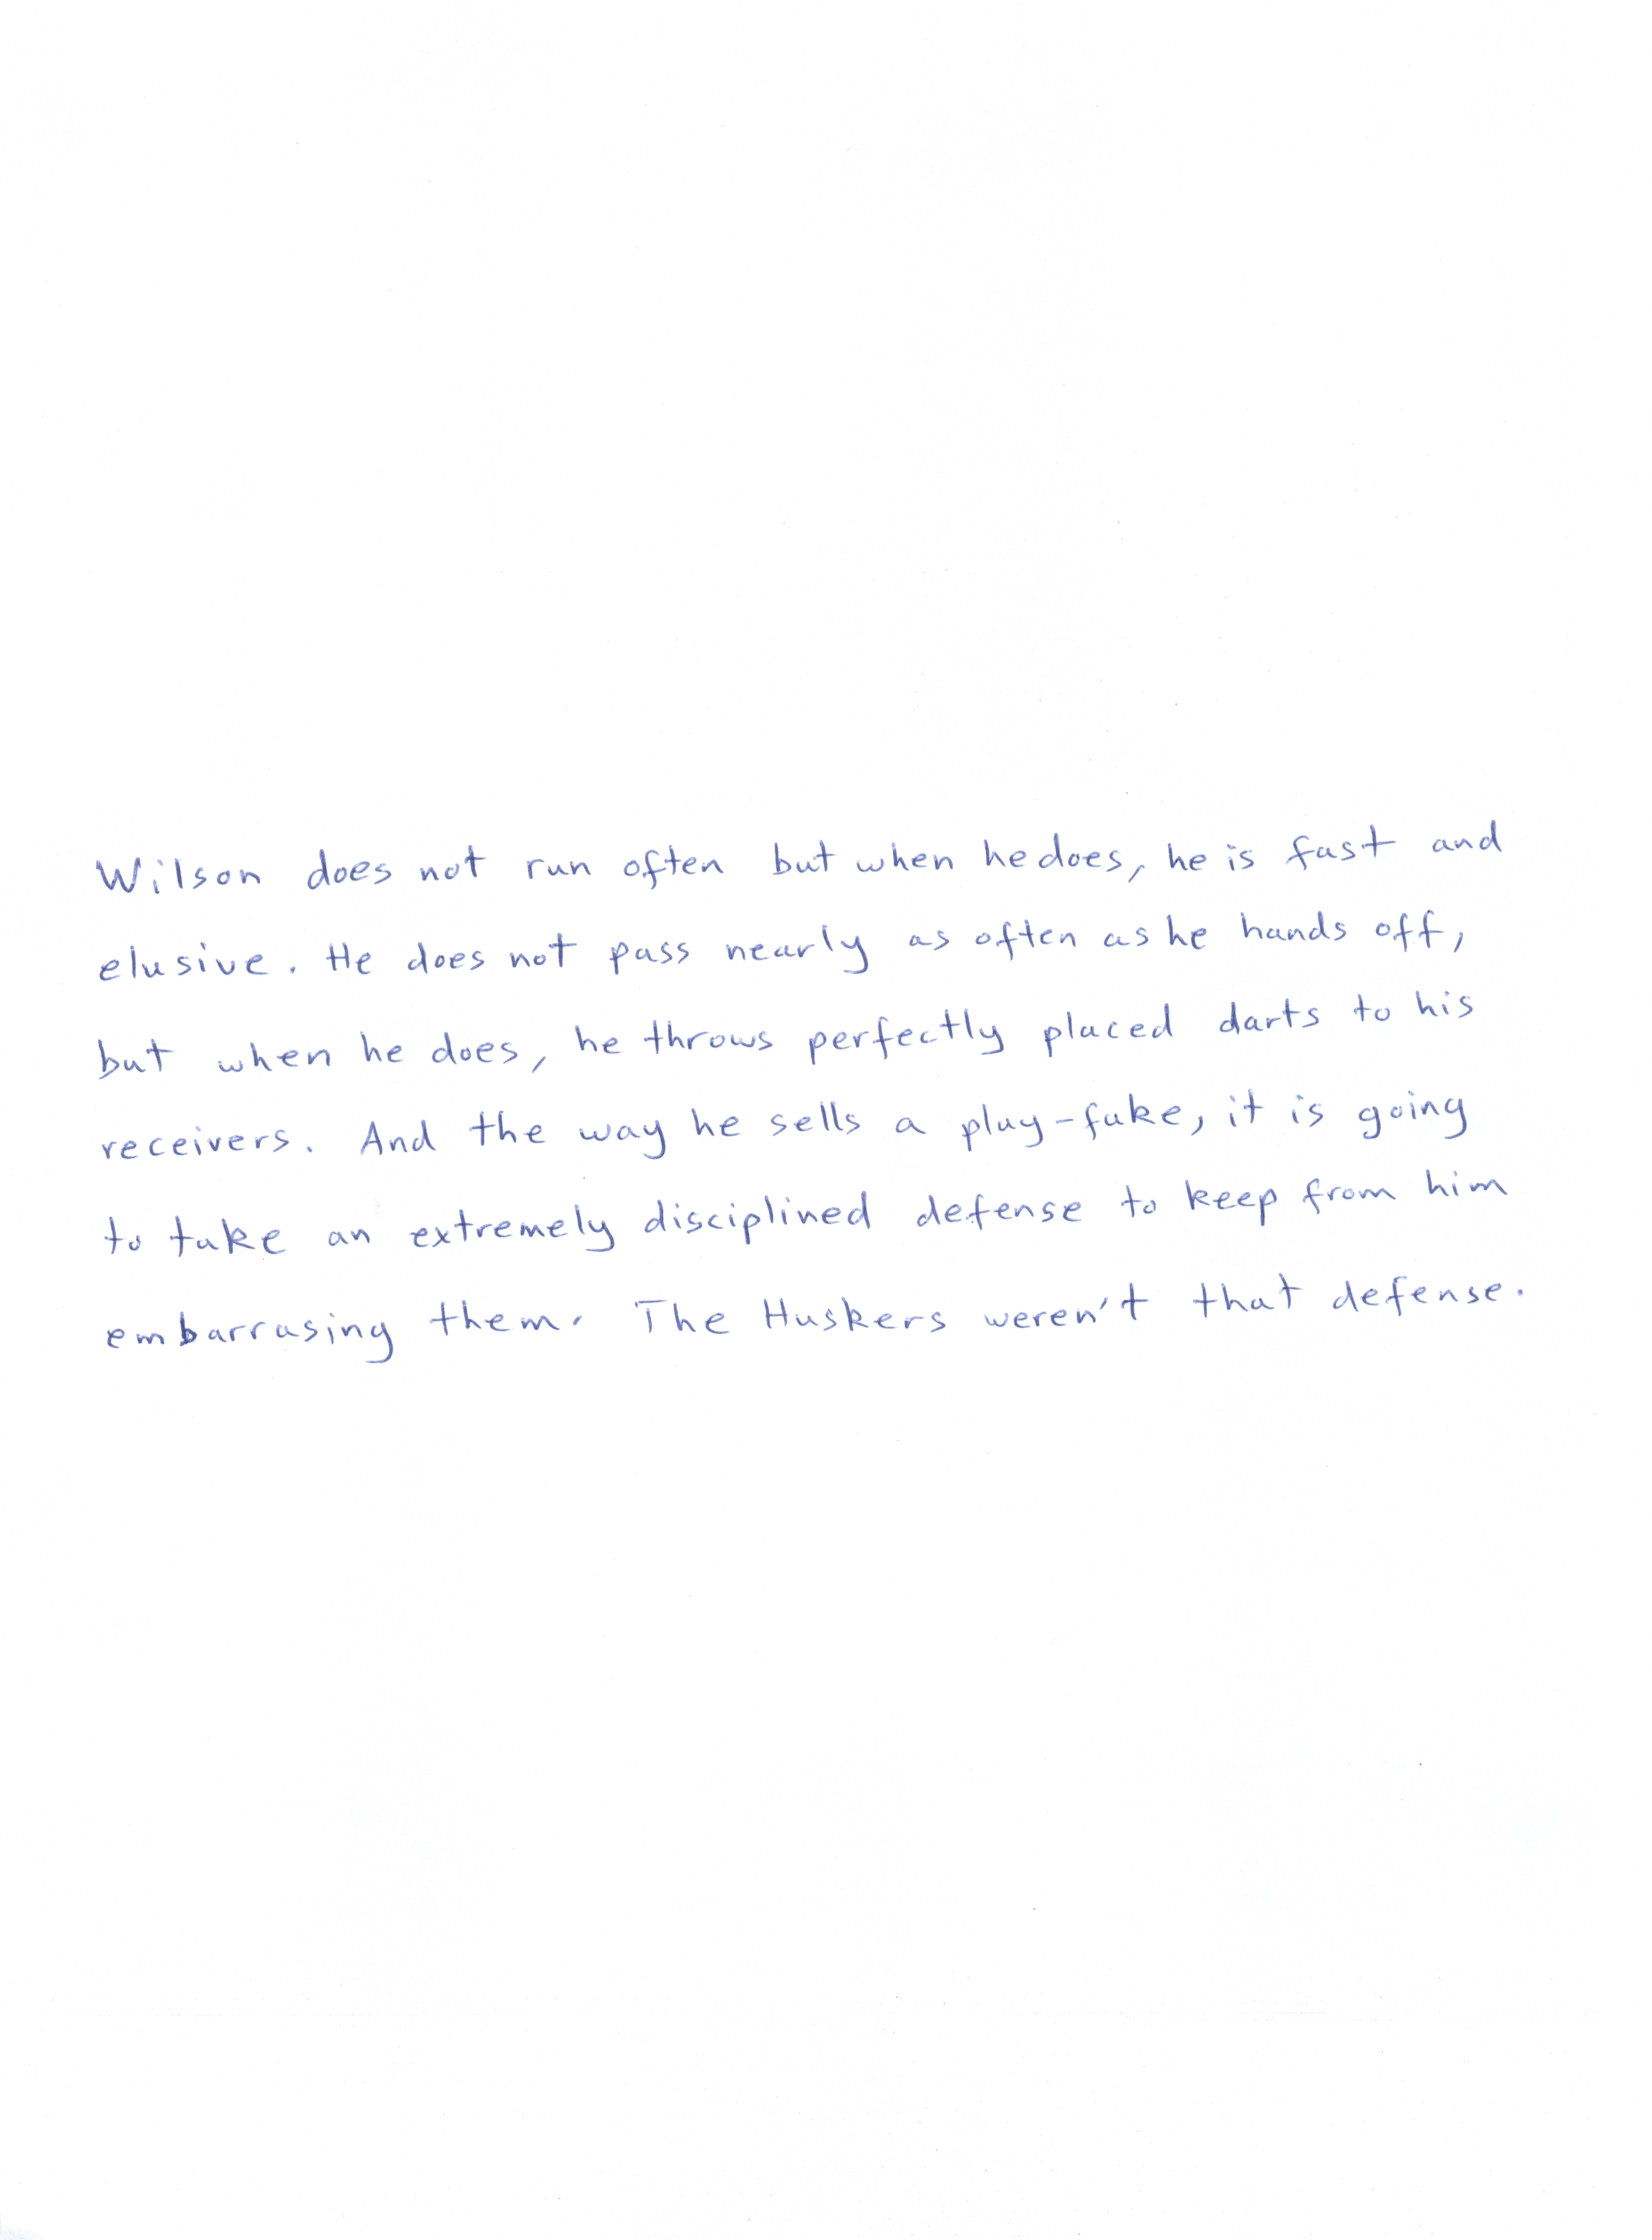 Wilson does not run often but when he does, he is fast and
elusive. He does not pass nearly as often as he hands off,
but when he does, he throws perfectly placed darts to his
receivers. And the way he sells a play-fake, it is going
to take an extremely disciplined defense to keep from him
embarrasing them. The Huskers weren't that defense.